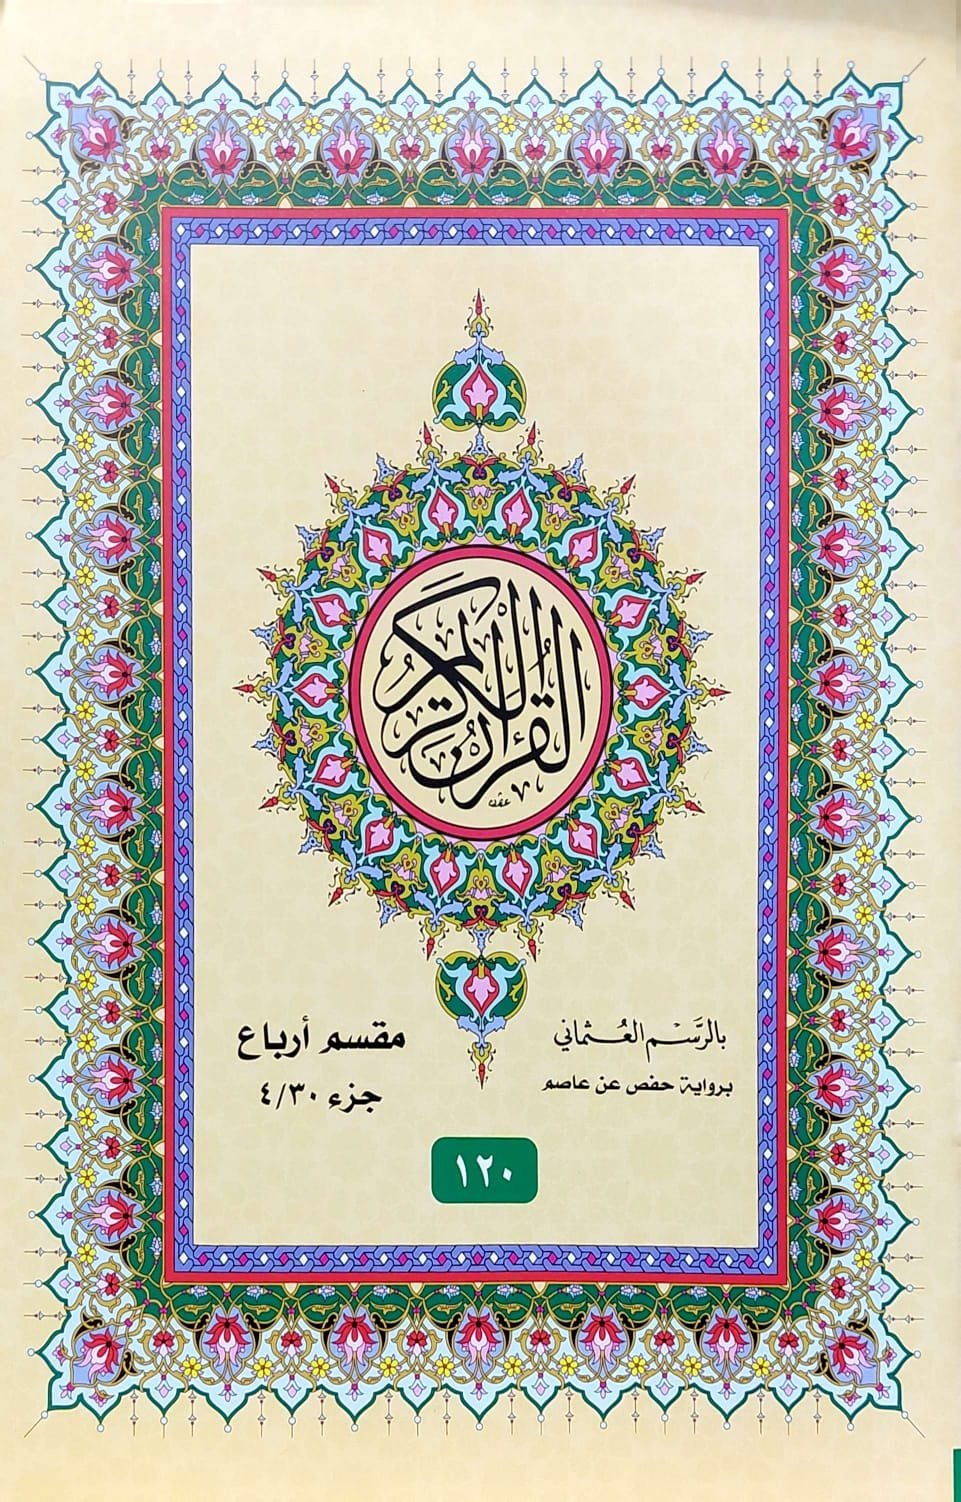 القرآن الكريم
بالرَّسْم العُثماني
برواية حفص عن عاصم
مقسم أرباع
جزء ٤/٣٠
١٢٠